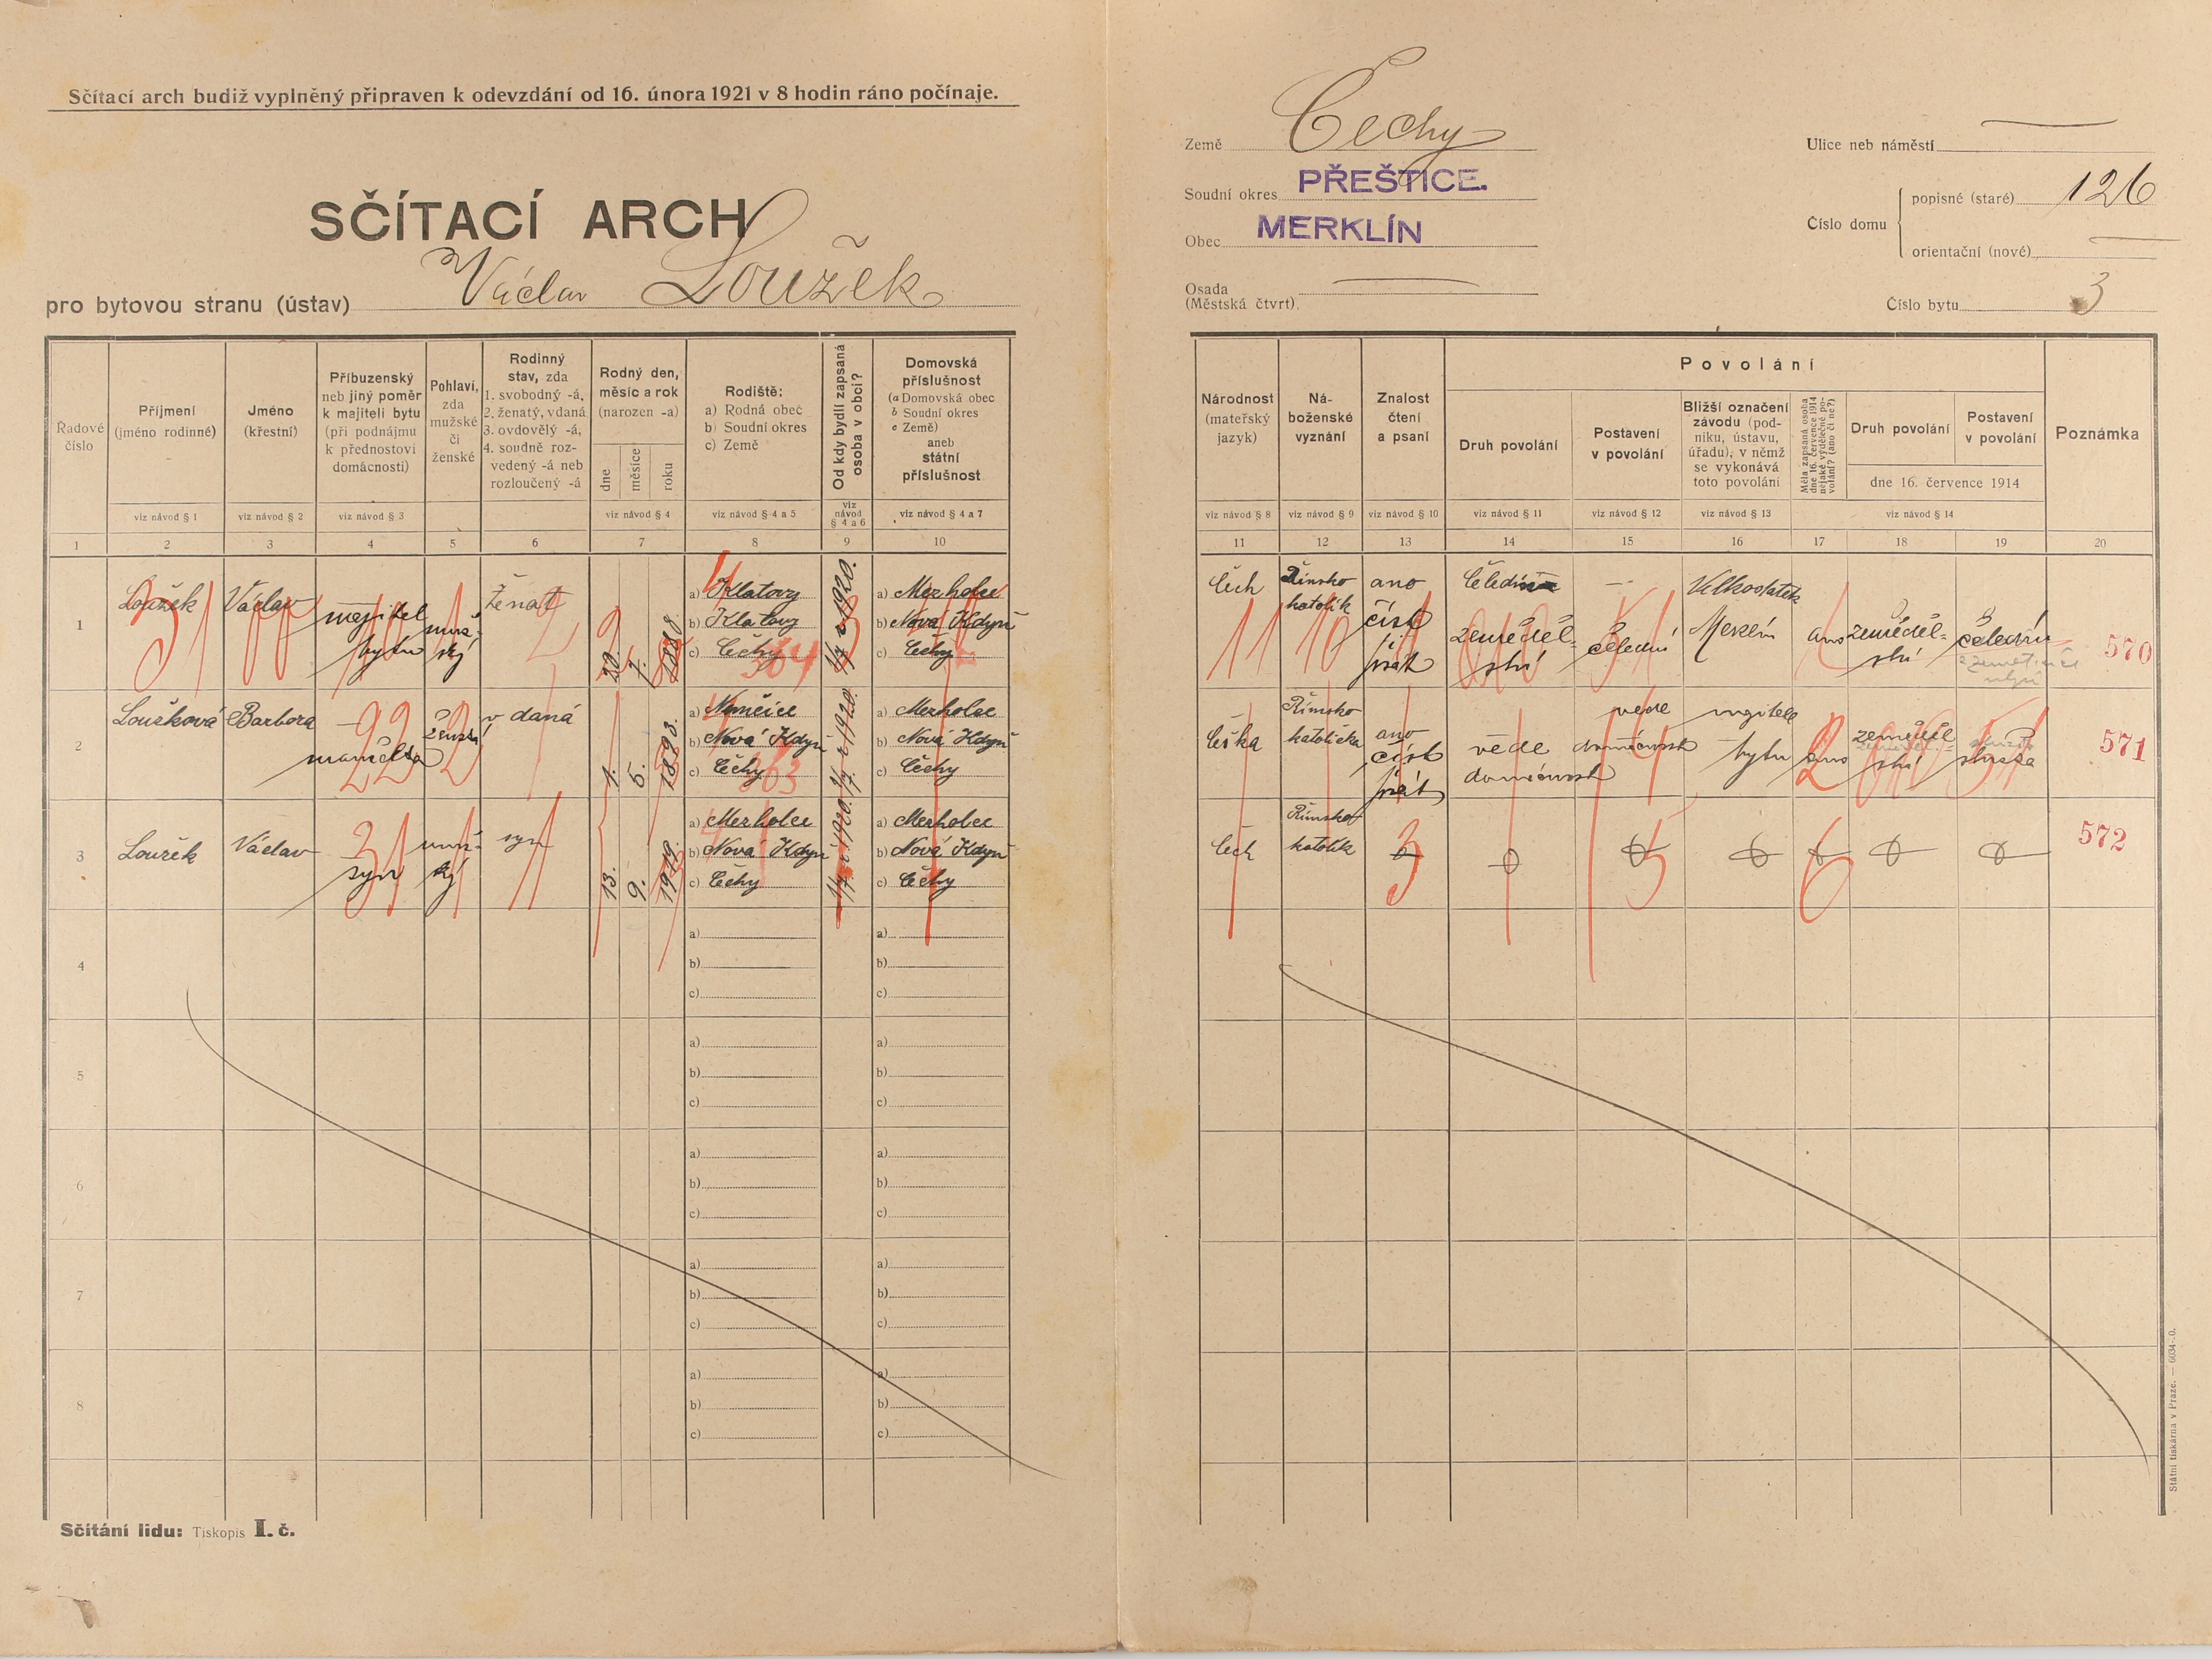 Sčítací arch budiž vyplněný připraven k odevzdání od 16. února 1921 v 8 hodin ráno počínaje.
SČÍTACÍ ARCH
pro bytovou stranu (ústav) Václav Loužek
Země Čechy
Soudní okres PŘEŠTICE.
Obec MERKLÍN
Osada
(Městská čtvrt)
Ulice neb náměstí
Číslo domu
popisné (staré) 126
orientační (nové)
Číslo bytu 3
Řadové číslo
Příjmení (jméno rodinné)
Jméno (křestní)
Příbuzenský neb jiný poměr k majiteli bytu (při podnájmu k přednostovi domácnosti)
Pohlaví, zda mužské či ženské
Rodinný stav, zda 1. svobodný -á, 2. ženatý, vdaná 3. ovdovělý -á, 4. soudně rozvedený -á neb rozloučený -á
Rodný den, měsíc a rok (narozen -a)
dne měsíce roku
Rodiště: a) Rodná obec b) Soudní okres c) Země
Od kdy bydlí zapsaná osoba v obci?
Domovská příslušnost (a Domovská obec b Soudní okres c Země) aneb státní příslušnost
Národnost (mateřský jazyk)
Náboženské vyznání
Znalost čtení a psaní
Povolání
Druh povolání
Postavení v povolání
Bližší označení závodu (podniku, ústavu, úřadu), v němž se vykonává toto povolání
Měla zapsaná osoba dne 16. července 1914 nějaké výdělečné povolání? (ano či ne?)
Druh povolání
Postavení v povolání
dne 16. července 1914
Poznámka
viz návod § 1 viz návod § 2 viz návod § 3 viz návod § 4 viz návod § 4 a 5 viz návod § 4 a 6 viz návod § 4 a 7
viz návod § 8 viz návod § 9 viz návod § 10 viz návod § 11 viz návod § 12 viz návod § 13 viz návod § 14
1 2 3 4 5 6 7 8 9 10
11 12 13 14 15 16 17 18 19 20
1 Loužek Václav majitel bytu mužský Ženat 20. 7. 1888
a) Klatovy
b) Klatovy
c) Čechy
1/7 1920.
a) Merholce
b) Nová Kdyň
c) Čechy
Čech Římsko katolík ano číst psát zemědělství čeledín Velkostatek Merklín ano zemědělství čeledín 570
2 Loužková Barbora manželka ženská vdaná 1. 5. 1893.
a) Němčice
b) Nová Kdyň
c) Čechy
1/7 1920
a) Merholce
b) Nová Kdyň
c) Čechy
Češka Římsko katolička ano číst psát vede domácnost vede domácnost majitele bytu ano zemědělství 571
3 Loužek Václav syn mužský syn 13. 9. 1919.
a) Merholce
b) Nová Kdyň
c) Čechy
1/7 1920.
a) Merholce
b) Nová Kdyň
c) Čechy
Čech Římsko katolík 572
4
a)
b)
c)
a)
b)
c)
5
a)
b)
c)
a)
b)
c)
6
a)
b)
c)
a)
b)
c)
7
a)
b)
c)
a)
b)
c)
8
a)
b)
c)
a)
b)
c)
Sčítání lidu: Tiskopis I. č.
Státní tiskárna v Praze. — 6034-.0.